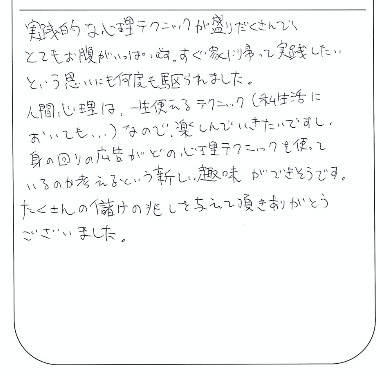 実践的な心理テクニックが盛りだくさんで、
とてもお腹がいっぱいです。すぐ家に帰って実践したい
という思いにも何度も駆られました。
人間心理は、一生使えるテクニック（私生活に
おいても...）なので、楽しんでいきたいですし、
身の回りの広告がどの心理テクニックを使って
いるのか考えるという新しい趣味ができそうです。
たくさんの儲けの兆しを与えて頂きありがとう
ございました。